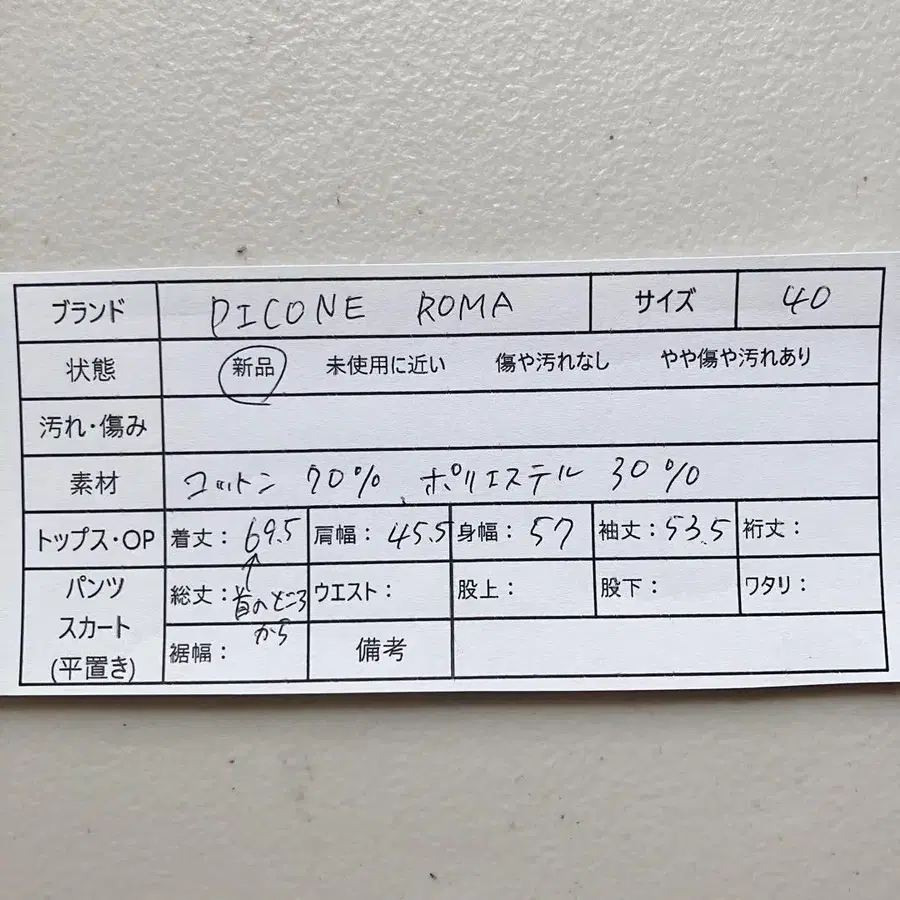 ブランド PICONE ROMA サイズ 40
状態 新品 未使用に近い 傷や汚れなし やや傷や汚れあり
汚れ・傷み
素材 コットン 70% ポリエステル 30%
トップス・OP 着丈: 69.5 肩幅: 45.5 身幅: 57 袖丈: 53.5 裄丈:
パンツ 総丈: 首のところ ウエスト: 股上: 股下: ワタリ:
スカート から
(平置き) 裾幅: 備考